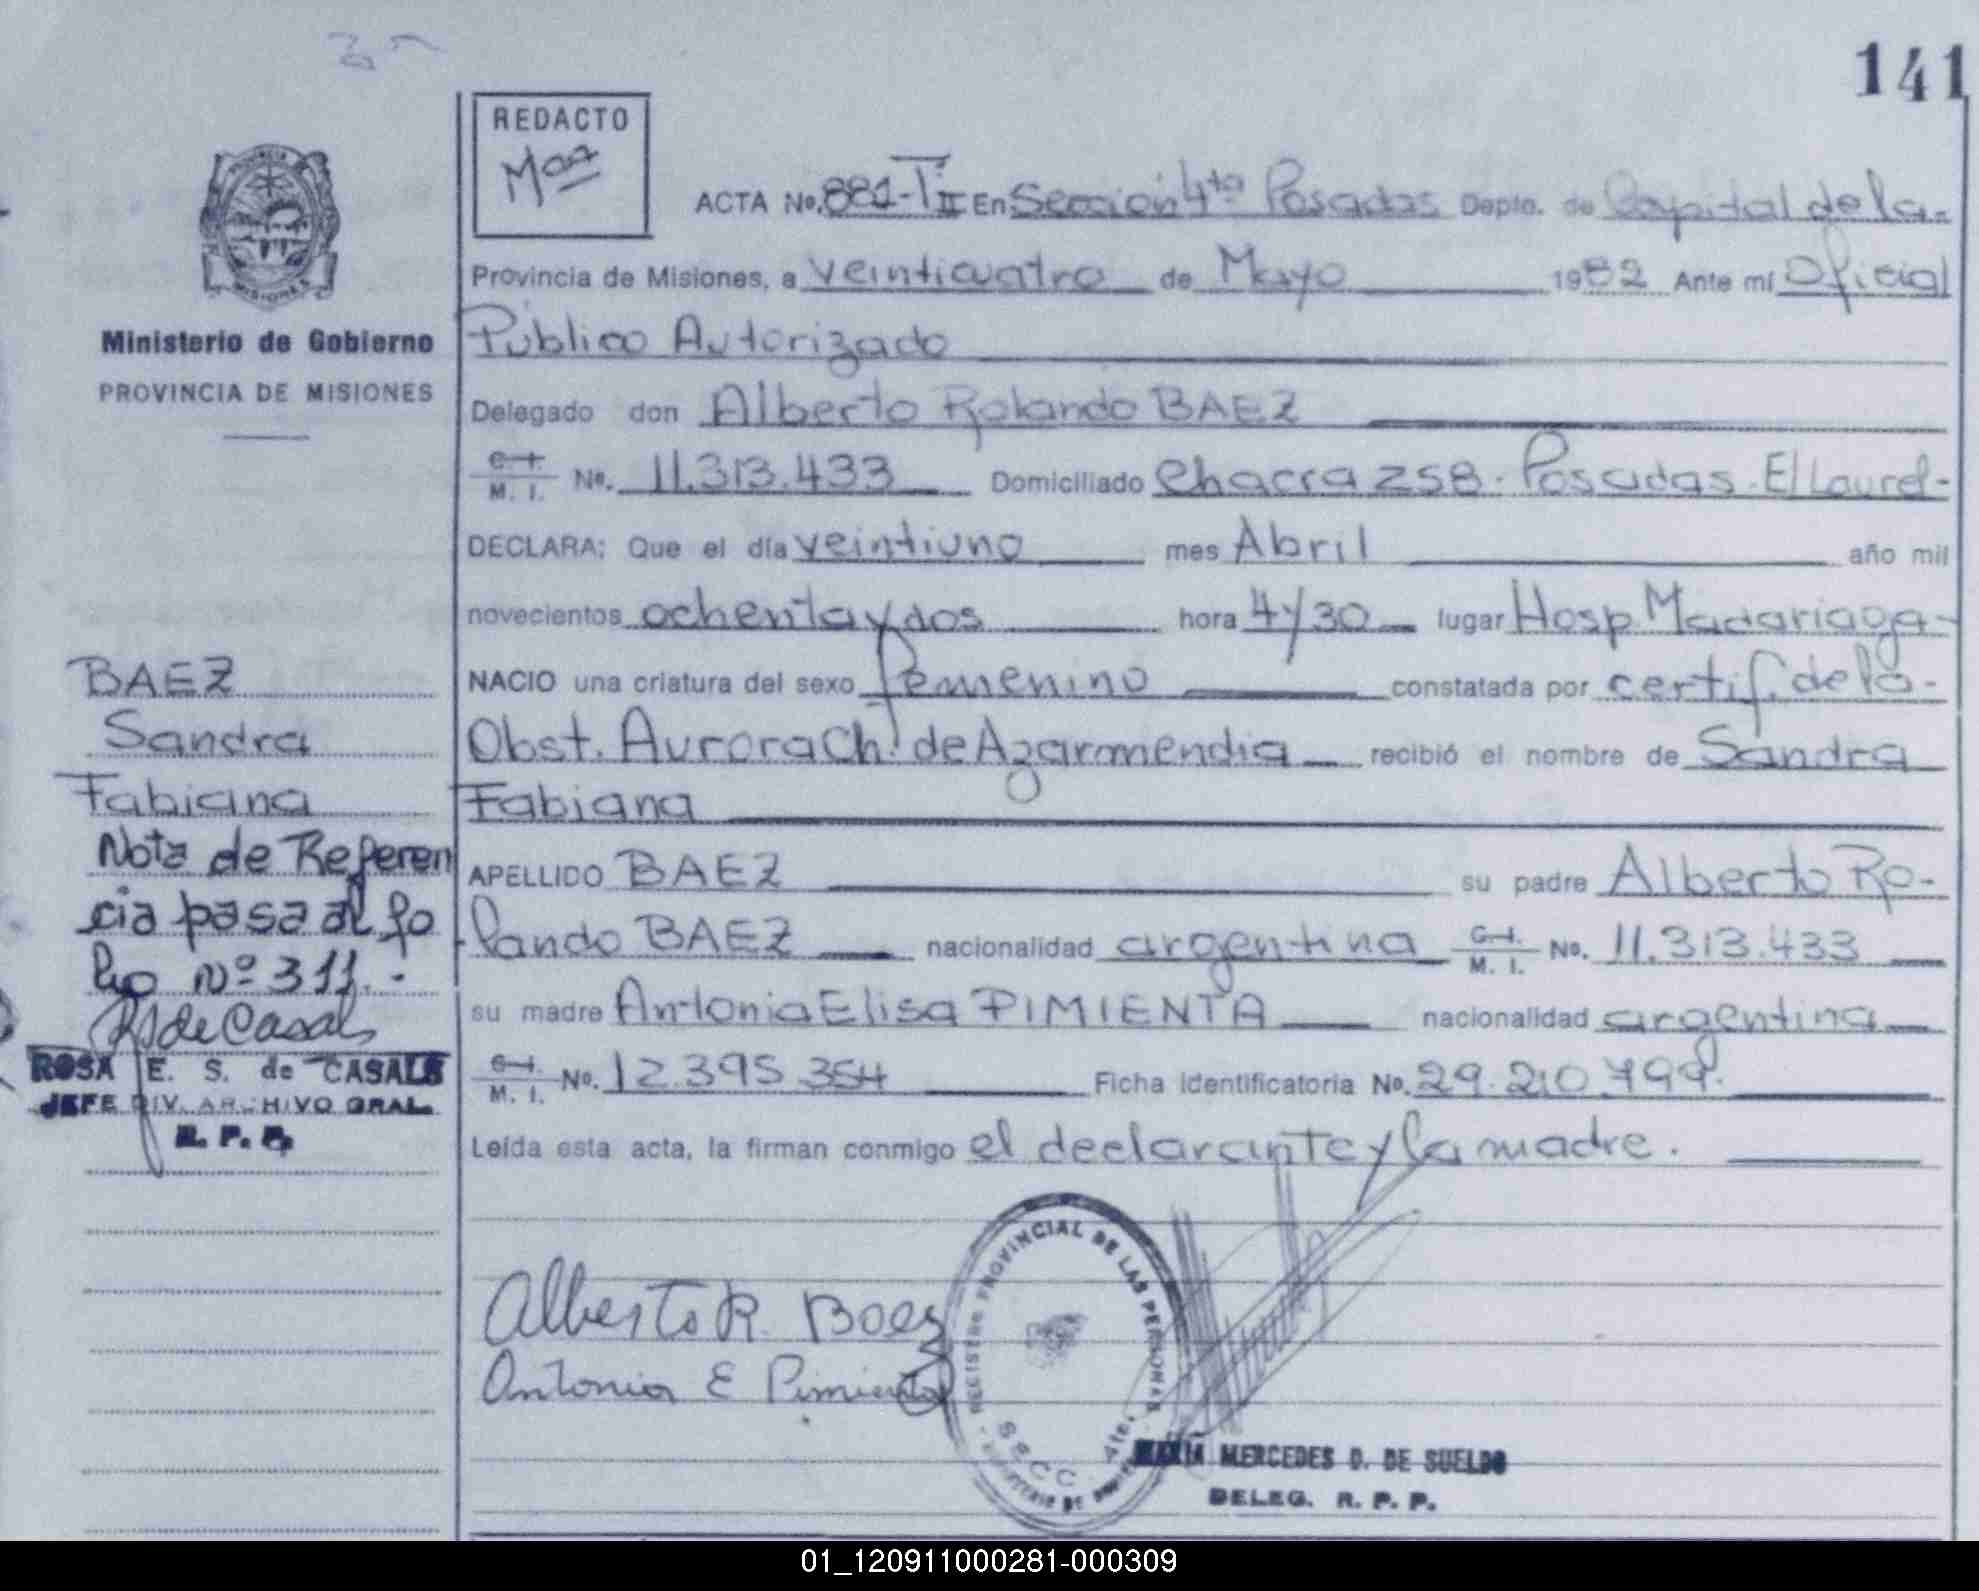 141
REDACTO
PROVINCIA
MISIONES
Ministerio de Gobierno
PROVINCIA DE MISIONES
ACTA No. 881-T II En Sección 4ta Posadas Depto. de Capital de la-
Provincia de Misiones, a veinticuatro de Mayo 1982 Ante mí Oficial
Público Autorizado
Delegado don Alberto Rolando BAEZ
C. I.
M. I. No. 11.313.433 Domiciliado Chacra 258. Posadas. El Laurel-
DECLARA: Que el día veintiuno mes Abril año mil
novecientos ochenta y dos hora 4y30 lugar Hosp. Madariaga-
NACIO una criatura del sexo femenino constatada por certif. de la-
Obst. Aurora Ch. de Azarmendia recibió el nombre de Sandra
Fabiana
APELLIDO BAEZ su padre Alberto Ro-
lando BAEZ nacionalidad argentina C. I.
M. I. No. 11.313.433
su madre Antonia Elisa PIMIENTA nacionalidad argentina
C. I.
M. I. No. 12.395.354 Ficha identificatoria No. 29.210.799.
Leída esta acta, la firman conmigo el declarante y la madre.
BAEZ
Sandra
Fabiana
Nota de Referen
cia pasa al fo
lio Nº 311.-
RS de Casals
ROSA E. S. de CASALS
JEFE DIV. ARCHIVO GRAL.
R. P. P.
Alberto R. Baez
Antonia E Pimienta
REGISTRO PROVINCIAL DE LAS PERSONAS
SECC. 4ta.
MINISTERIO DE
MARIA MERCEDES D. DE SUELDO
DELEG. R. P. P.
01_120911000281-000309